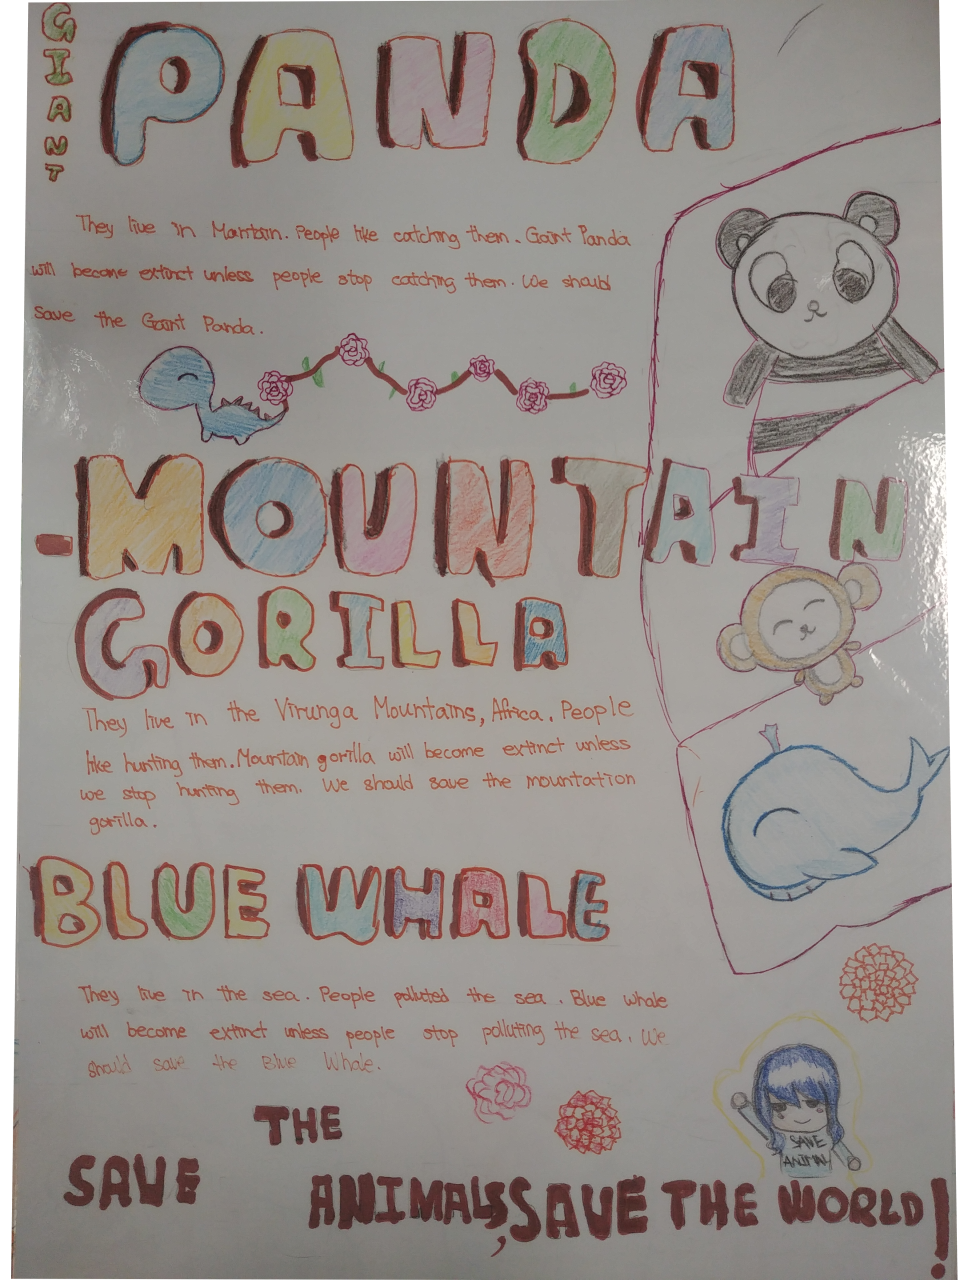 GIANT
PANDA
They live in Mantain. People like catching them. Gaint Panda
will become extinct unless people stop catching them. We should
save the Gaint Panda.
-MOUNTAIN
GORILLA
They live in the Virunga Mountains, Africa. People
like hunting them. Mountain gorilla will become extinct unless
we stop hunting them. We should save the mountation
gorilla.
BLUE WHALE
They live in the sea. People polluted the sea. Blue whale
will become extinct unless people stop polluting the sea. We
should save the Blue Whale.
SAVE
ANIMAL
SAVE THE ANIMALS, SAVE THE WORLD!